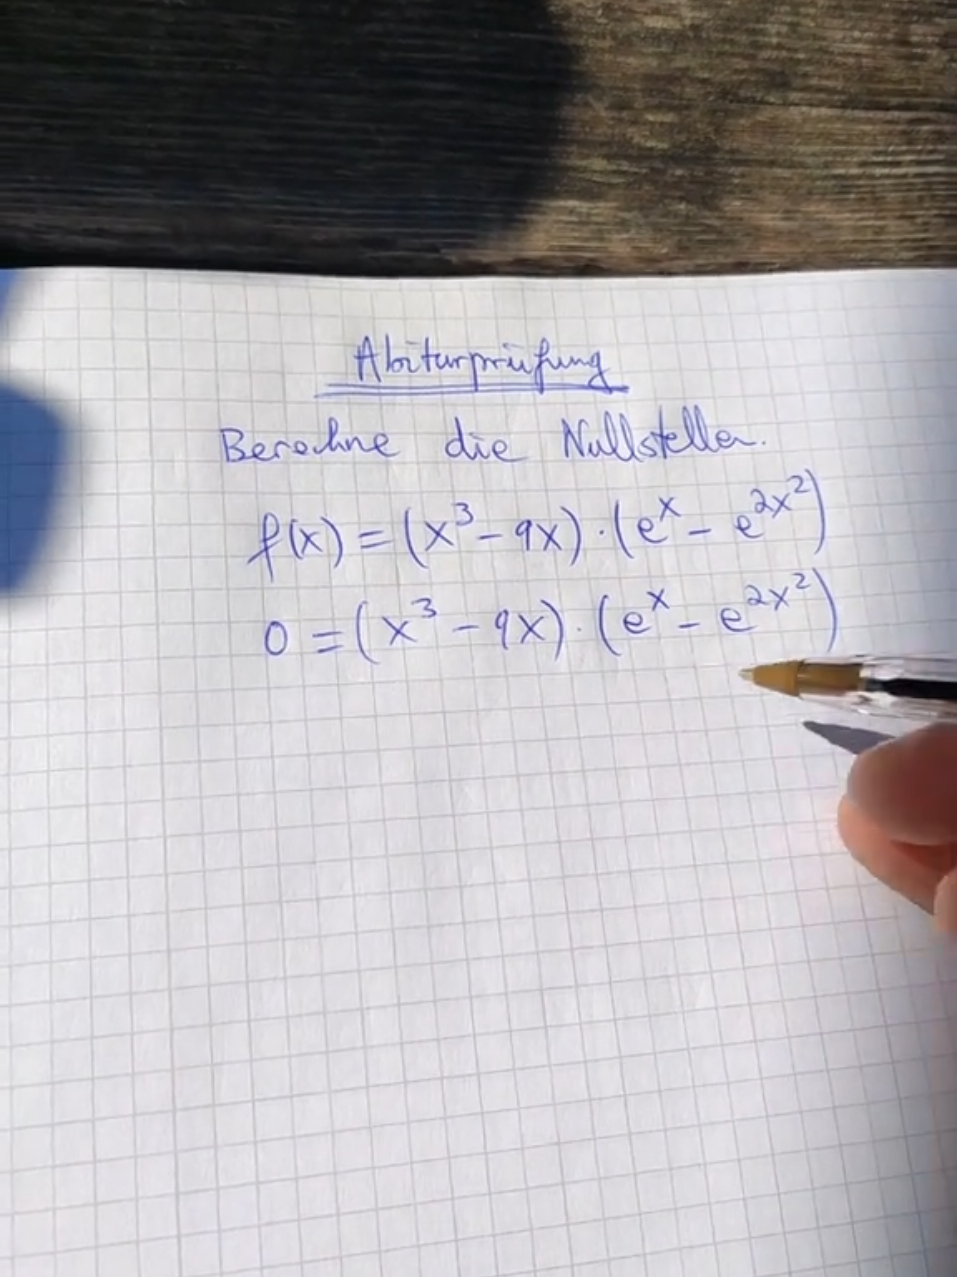 Abiturprüfung
Berechne die Nullstellen.
f(x) = (x³ - 9x) · (eˣ - e^{2x²})
0 = (x³ - 9x) · (eˣ - e^{2x²})